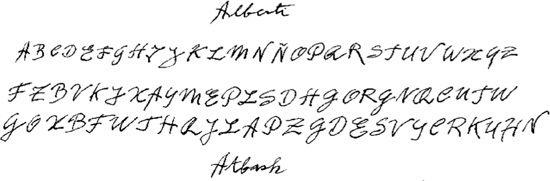 Alberti
ABCDEFGHIJKLMNÑOPQRSTUVWXYZ
FZBVKIXAYMEPLSDHJORGNQCUTW
GOXBFWTHQILAPZJDESVYCRKUHN
Atbash